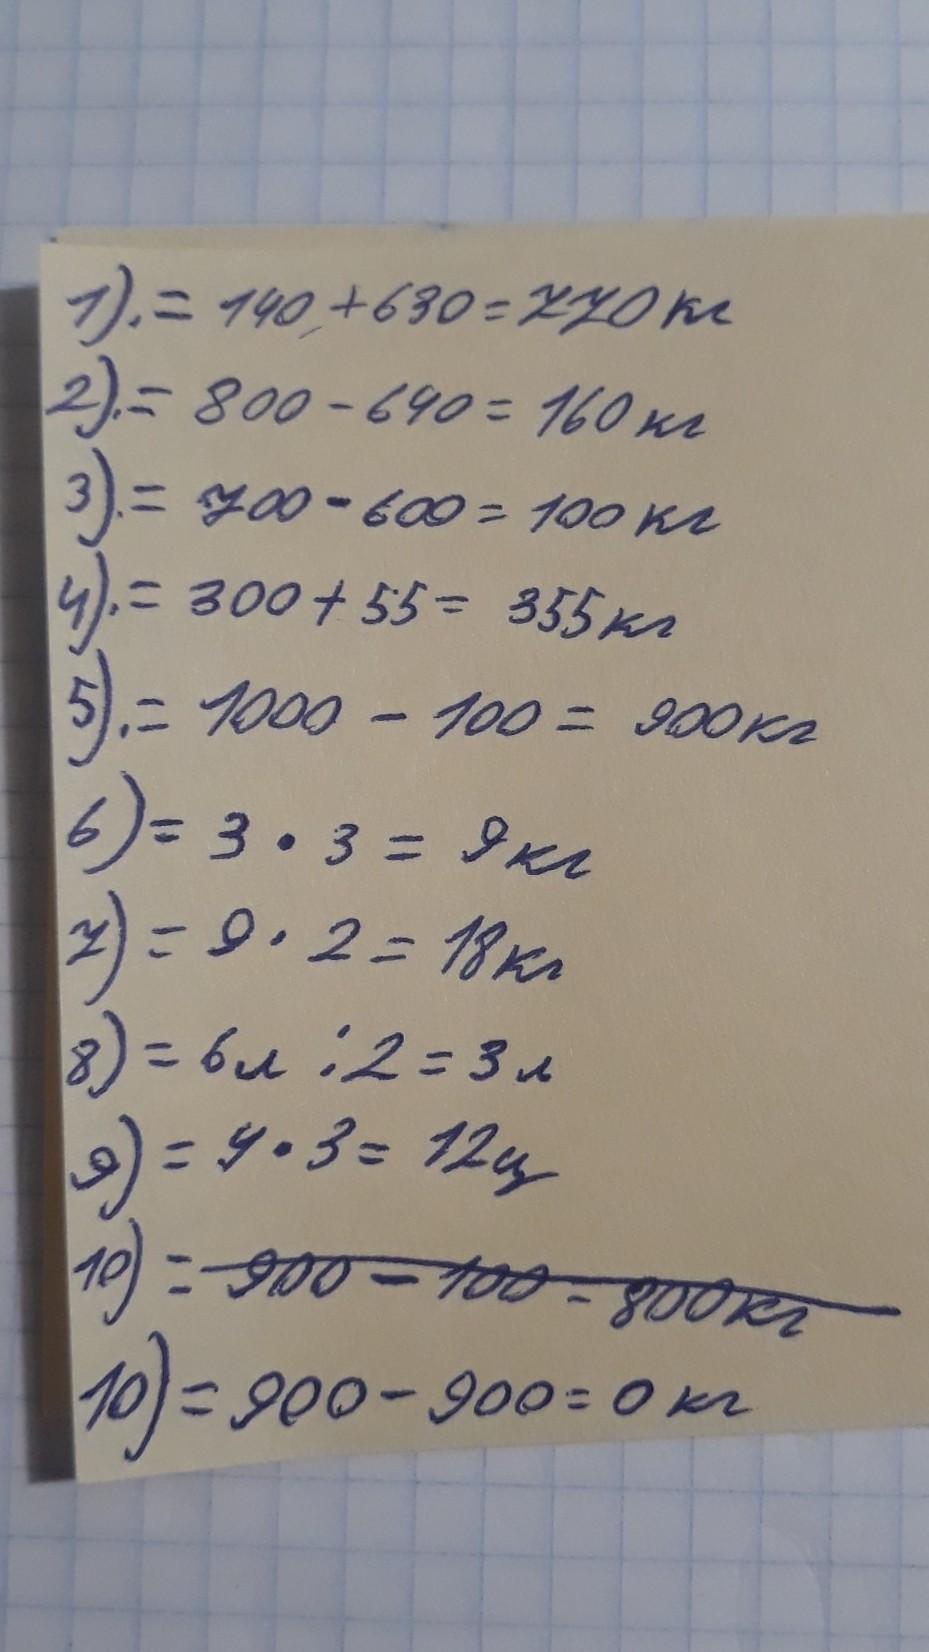 1).= 140 + 630 = 770 кг
2).= 800 - 640 = 160 кг
3).= 700 - 600 = 100 кг
4).= 300 + 55 = 355 кг
5).= 1000 - 100 = 900 кг
6) = 3 · 3 = 9 кг
7) = 9 · 2 = 18 кг
8) = 6 л : 2 = 3 л
9) = 4 · 3 = 12 ц
10) = 900 - 100 = 800 кг
10) = 900 - 900 = 0 кг